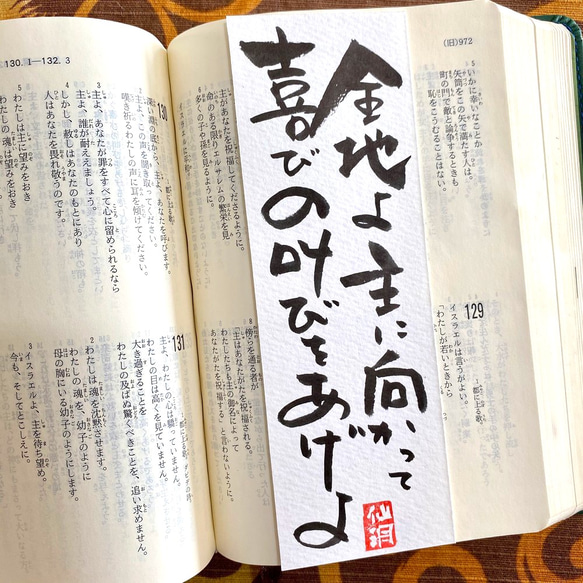 (旧)972
5 いかに幸いなことか
矢筒をこの矢で満たす人は。
町の門で敵と論争するときも
恥をこうむることはない。
129
都に上る歌。
イスラエルは言うがよい。
「わたしが若いときから
全地よ主に向かって
喜びの叫びをあげよ
主があなたを祝福してくださるように。
エルサレムの繁栄を見
子らの孫を見るように。
130. 1―132. 3
130
都に上る歌。
深い淵の底から、主よ、あなたを呼びます。
2 主よ、この声を聞き取ってください。
嘆き祈るわたしの声に耳を傾けてください。
3 主よ、あなたが罪をすべて心に留められるなら
主よ、誰が耐ええましょう。
4 しかし、赦しはあなたのもとにあり
人はあなたを畏れ敬うのです。
5 わたしは主に望みをおき
わたしの魂は望みをおき
8 傍らを通る者が
「主はあなたがたを祝福される。
わたしたちも主の御名によって
あなたがたを祝福する」と言わないように。
131
都に上る歌。ダビデの詩。
主よ、わたしの心は驕っていません。
わたしの目は高くを見ていません。
大き過ぎることを
わたしの及ばぬ驚くべきことを、追い求めません。
2 わたしは魂を沈黙させます。
わたしの魂を、幼子のように
母の胸にいる幼子のようにします。
3 イスラエルよ、主を待ち望め。
今も、そしてとこしえに。